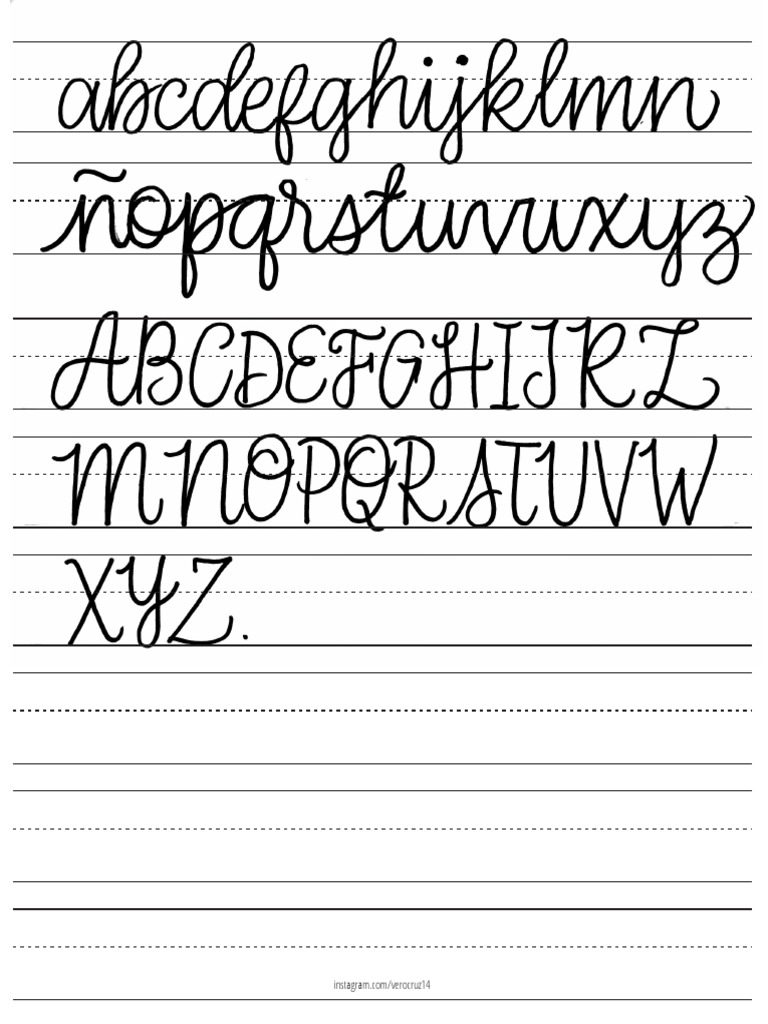 abcdefghijklmn
ñopqrstuvwxyz
ABCDEFGHIJKL
MNOPQRSTUVW
XYZ.
instagram.com/verocruz14